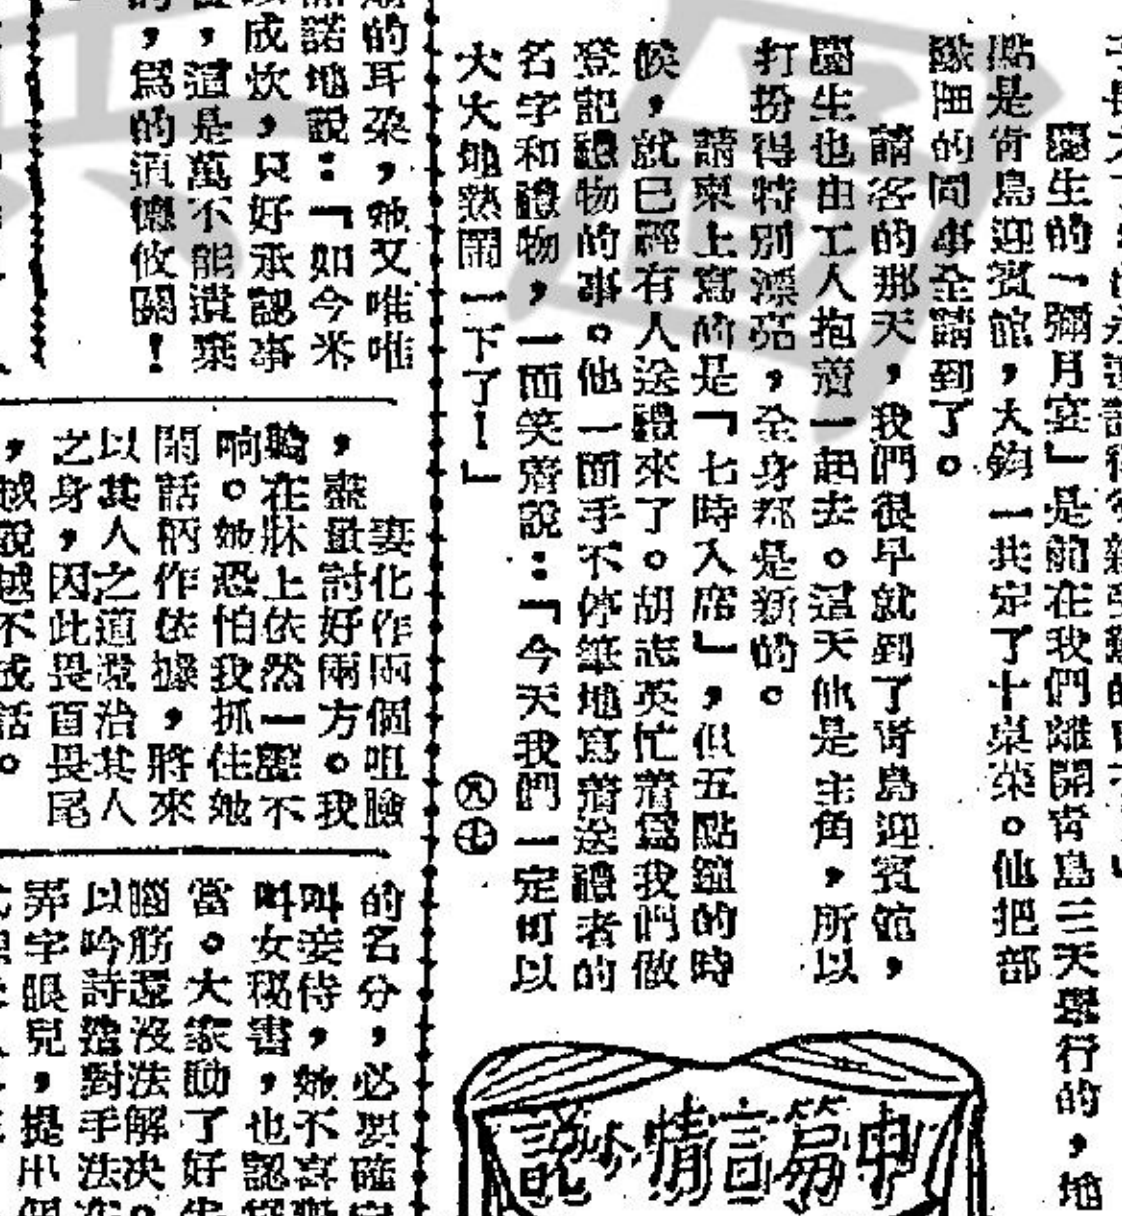 慶生的「彌月宴」是前在我們離開青島三天舉行的，地
點是青島迎賓館，大鈞一共定了十桌菜。他把部
隊里的同事全請到了。
請客的那天，我們很早就到了青島迎賓館，
慶生也由工人抱着一起去。這天他是主角，所以
打扮得特別漂亮，全身都是新的。
請柬上寫的是「七時入席」，但五點鐘的時
候，就已經有人送禮來了。胡志英忙着爲我們做
登記禮物的事。他一面手不停筆地寫着送禮者的
名字和禮物，一面笑着說：「今天我們一定可以
大大地熱鬧一下了！」
㊇㊆
中篇言情小說
的耳朶，她又唯唯
諾地說：「如今米
成炊，只好承認事
，這是萬不能遺棄
，爲的道德攸關！
妻化作兩個咀臉
，盡量討好兩方。我
躺在牀上依然一聲不
响。她恐怕我抓住她
閑話柄作依據，將來
以其人之道還治其人
之身，因此畏首畏尾
，越說越不成話。
的名分，必要確定
叫妾侍，她不喜歡
叫女秘書，也認爲
當。大家動了好
腦筋還沒法解決。
以吟詩對手法
弄字眼兒，提出個